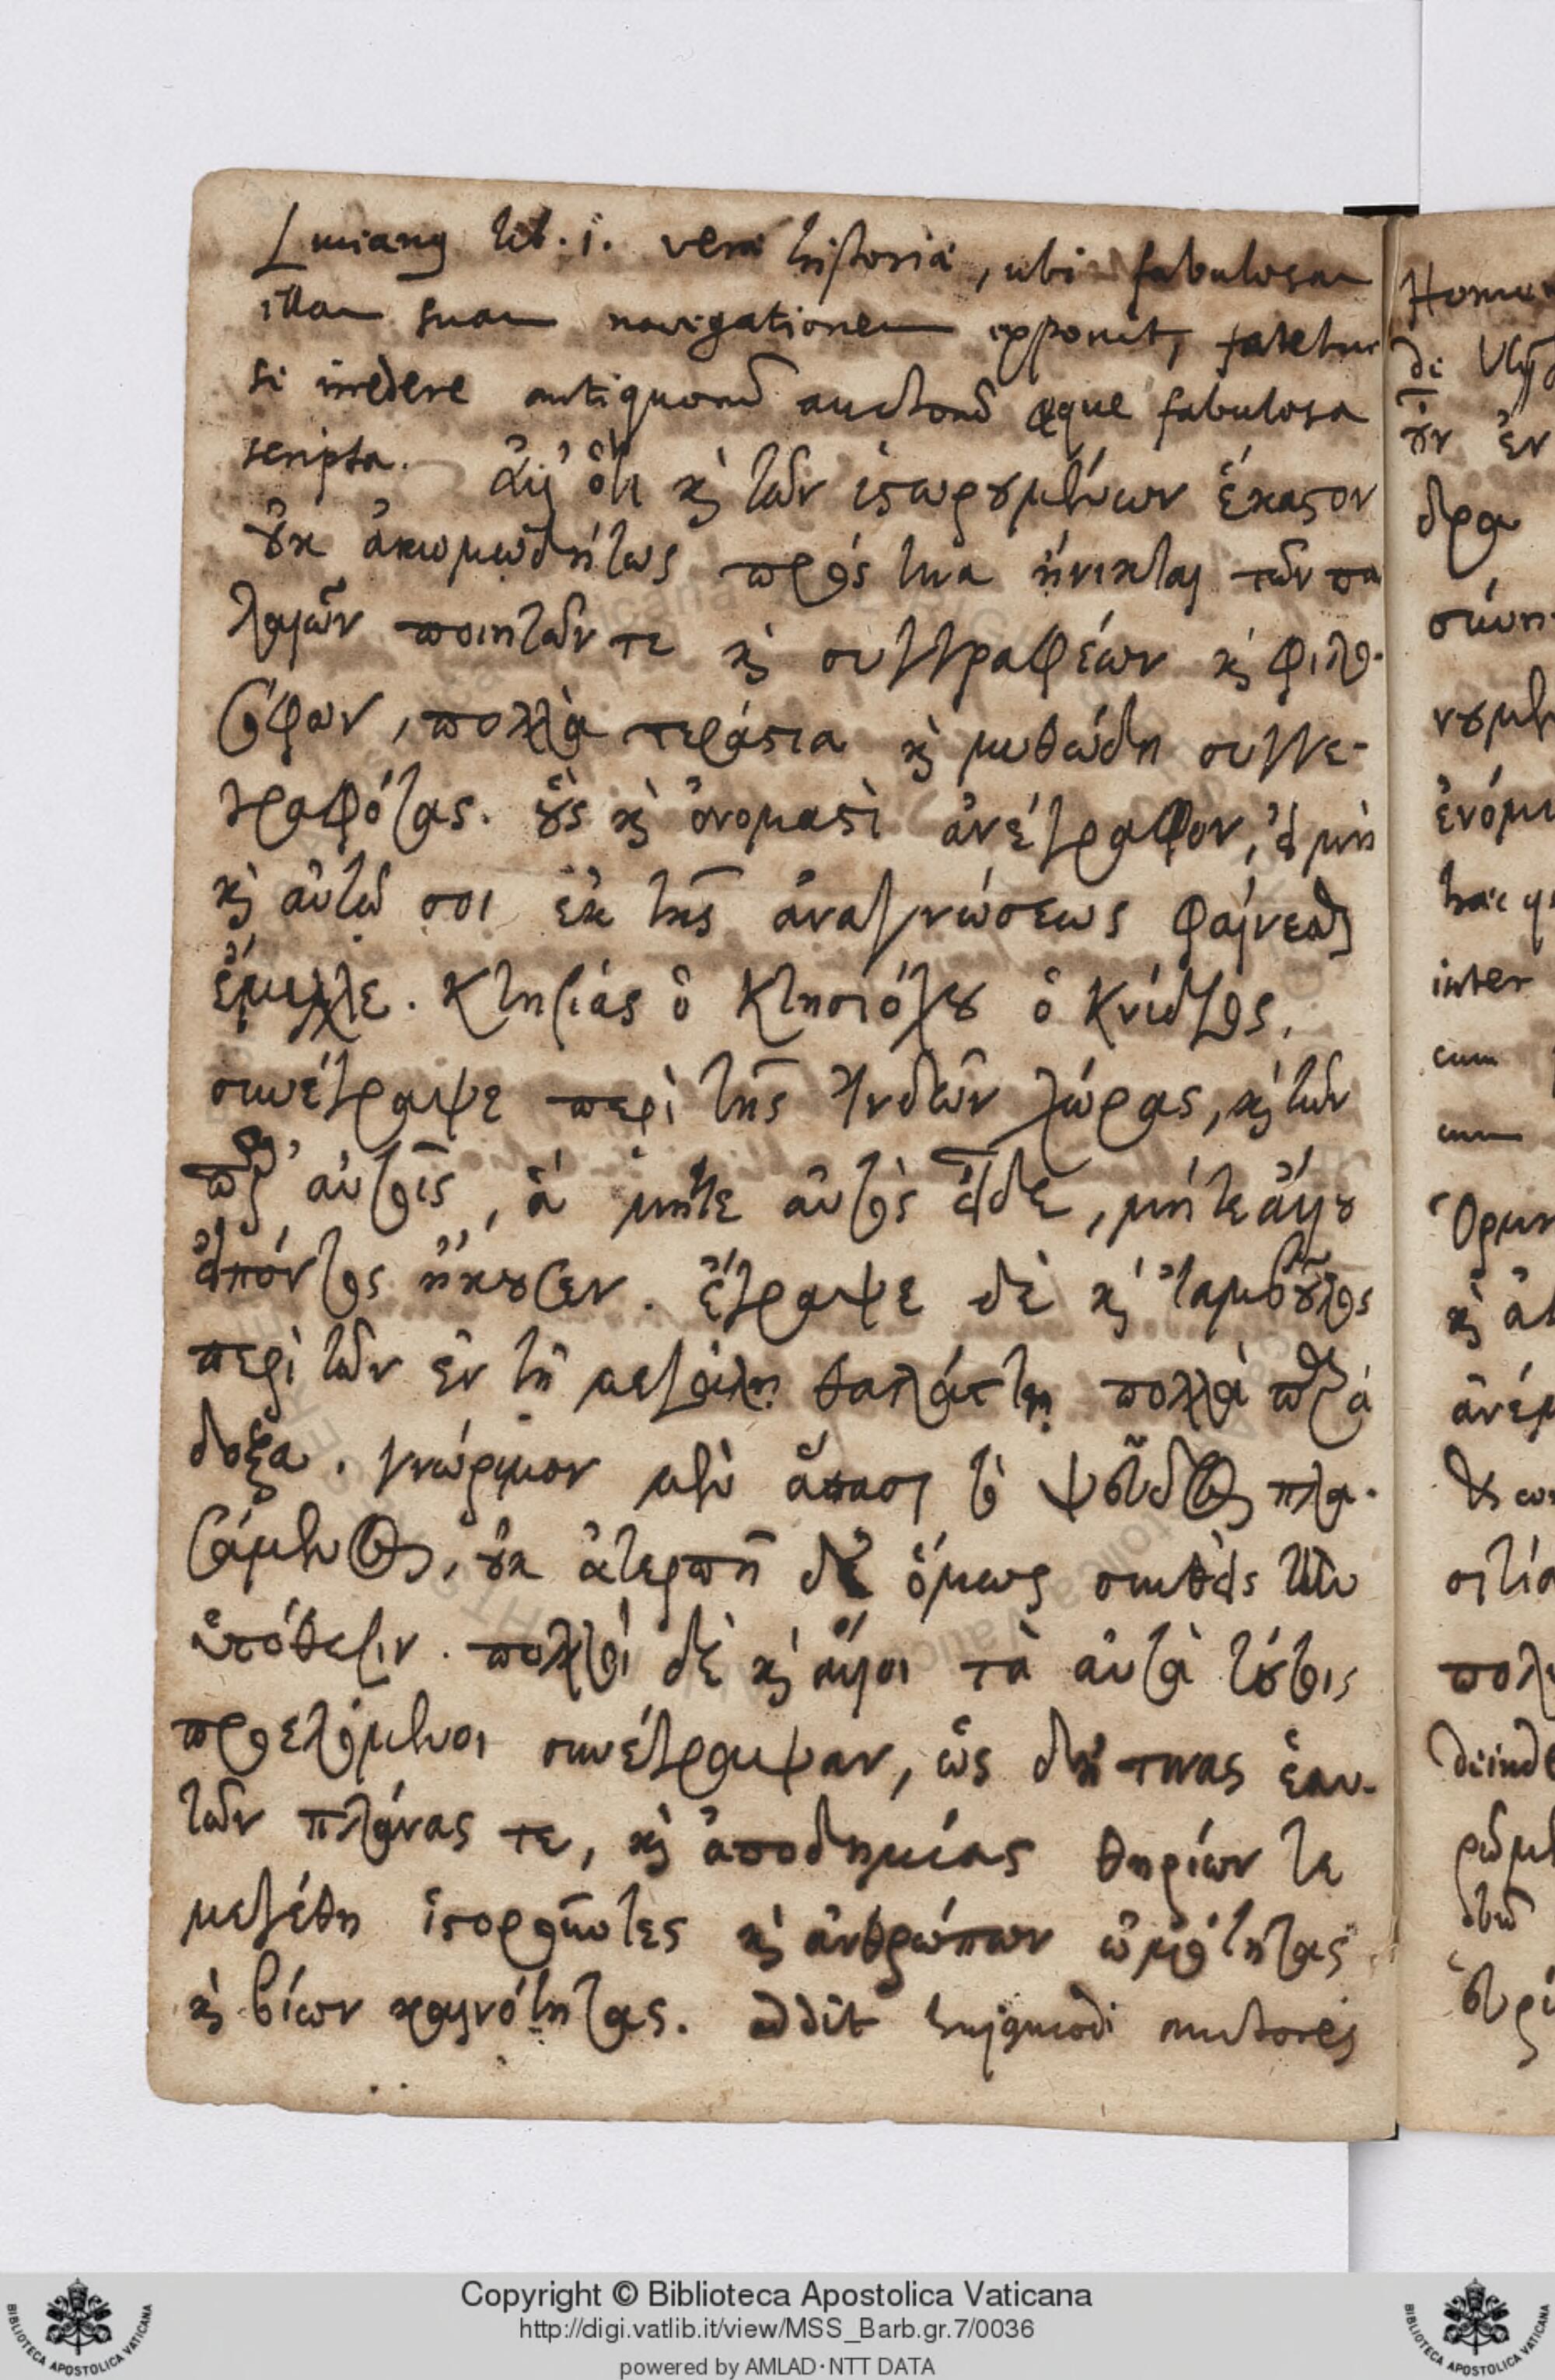 Lucianus lib. i. verae historiae, ubi fabulosam
illam suam navigationem exponit, fatetur
se irredere antiquorum auctorum aeque fabulosa
scripta. ἀλλ' ὅτι καὶ τῶν ἱστορουμένων ἕκαστον
οὐκ ἀκωμῳδήτως πρός τινα ᾔνικται τῶν πα
λαιῶν ποιητῶν τε καὶ συγγραφέων καὶ φιλο-
σόφων, πολλὰ τεράστια καὶ μυθώδη συγγε-
γραφότας. οὓς καὶ ὀνομαστὶ ἂν ἔγραφον, εἰ μὴ
καὶ αὐτῷ σοι ἐκ τῆς ἀναγνώσεως φαίνεσθαι
ἔμελλε. Κτησίας ὁ Κτησιόχου ὁ Κνίδιος,
συνέγραψε περὶ τῆς Ἰνδῶν χώρας, καὶ τῶν
παρ' αὐτοῖς, ἃ μήτε αὐτὸς εἶδε, μήτε ἄλλου
εἰπόντος ἤκουσεν. ἔγραψε δὲ καὶ Ἰαμβοῦλος
περὶ τῶν ἐν τῇ μεγάλῃ θαλάττῃ πολλὰ παρά
δοξα. γνώριμον μὲν ἅπασι τὸ ψεῦδος πλα-
σάμενος, οὐκ ἀτερπῆ δὲ ὅμως συνθεὶς τὴν
ὑπόθεσιν. πολλοὶ δὲ καὶ ἄλλοι τὰ αὐτὰ τούτοις
προελόμενοι συνέγραψαν, ὡς δή τινας ἑαυ-
τῶν πλάνας τε, καὶ ἀποδημίας θηρίων τε
μεγέθη ἱστοροῦντες καὶ ἀνθρώπων ὠμότητας
καὶ βίων καινότητας. addit huiusmodi auctores
Copyright © Biblioteca Apostolica Vaticana
http://digi.vatlib.it/view/MSS_Barb.gr.7/0036
powered by AMLAD·NTT DATA